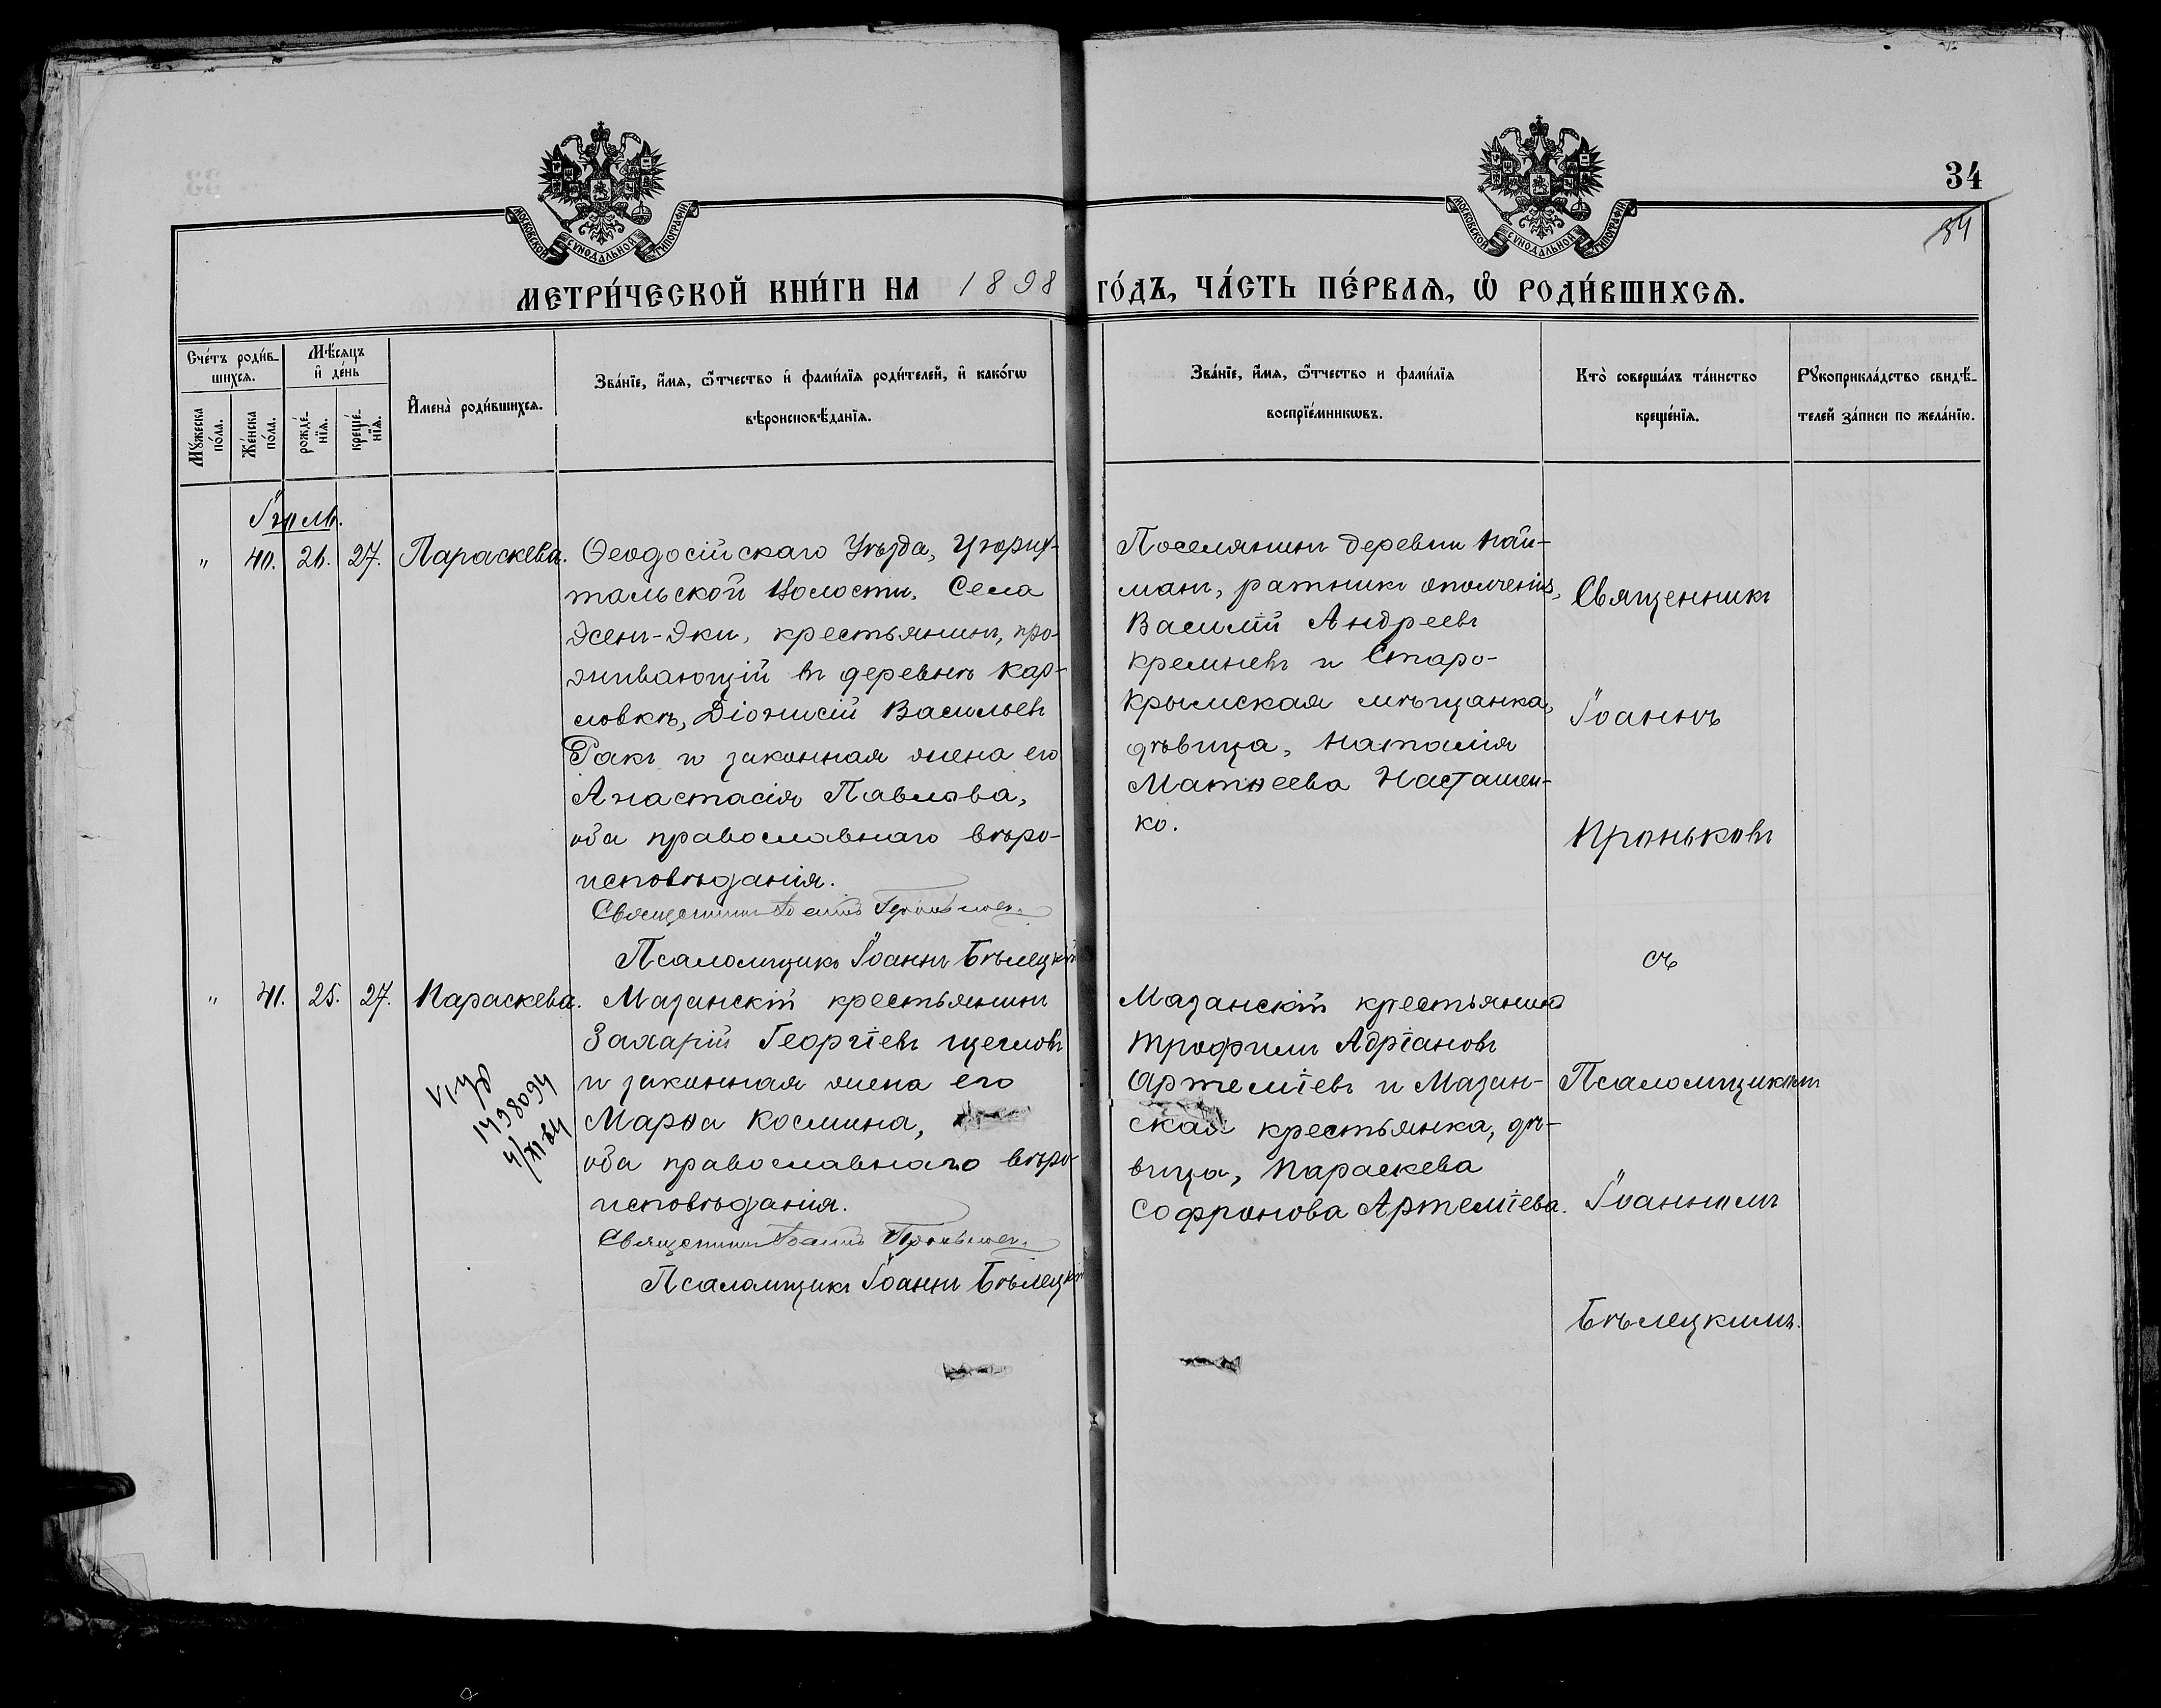 34
34
МОСКОВСКОЙ СѴНОДАЛЬНОЙ ТИПОГРАФІИ
МОСКОВСКОЙ СѴНОДАЛЬНОЙ ТИПОГРАФІИ
МЕТРИ́ЧЕСКОЙ КНИ́ГИ НА 1898 ГО́ДЪ, ЧА́СТЬ ПЕ́РВАѦ, Ѽ РОДИ́ВШИХСѦ.
Сче́тъ роди́в-
шихсѧ.
Мꙋжеска по́ла.
Же́нска по́ла.
Мѣ́сѧцъ
и҆ де́нь
рожде́-
нїѧ.
креще́-
нїѧ.
И҆мена̀ роди́вшихсѧ.
Зва́нїе, и҆́мѧ, ѻ҆́тчество и҆ фами́лїѧ роди́телей, и҆ како́гѡ
вѣроисповѣ́данїѧ.
Зва́нїе, и҆́мѧ, ѻ҆́тчество и фами́лїѧ
воспрїе́мникѡвъ.
Кто̀ соверша́лъ та́инство
креще́нїѧ.
Рꙋкоприкла́дство свидѣ́-
телей за́писи по жела́нїю.
Іюль.
" 40. 26. 27. Параскева.
Ѳеодосійскаго Уѣзда, Цюрих-
тальской Волости, Села
Эсенъ-Эки, крестьянинъ, про-
живающій въ деревнѣ Кар-
ловкѣ, Діонисій Васильевъ
Ракъ и законная жена его
Анастасія Павлова,
оба православнаго вѣро-
исповѣданія.
Священникъ Іоаннъ Проньковъ
Псаломщикъ Іоаннъ Бѣлецкій
Поселянинъ деревни Най-
манъ, ратникъ ополченія,
Василій Андреевъ
Кремневъ и Старо-
Крымская мѣщанка,
дѣвица, Наталія
Матѳеева Насташен-
ко.
Священникъ
Іоаннъ
Проньковъ
съ
Псаломщикомъ
Іоанномъ
Бѣлецкимъ.
" 41. 25. 27. Параскева.
Мазанскій крестьянинъ
Захарій Георгіевъ Щегловъ
и законная жена его
Марѳа Космина,
оба православнаго вѣро-
исповѣданія.
Священникъ Іоаннъ Проньковъ
Псаломщикъ Іоаннъ Бѣлецкій
Мазанскій крестьянинъ
Трофимъ Адріановъ
Артеміевъ и Мазан-
ская крестьянка, дѣ-
вица, Параскева
Софронова Артеміева.